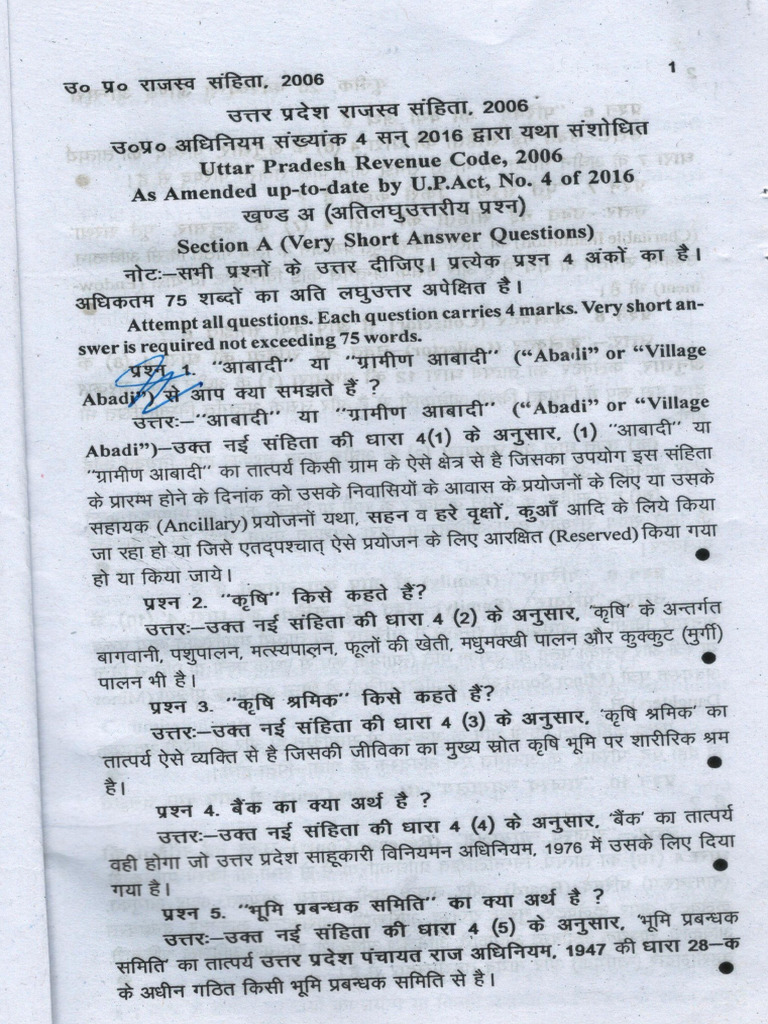 उ० प्र० राजस्व संहिता, 2006
1
उत्तर प्रदेश राजस्व संहिता, 2006
उ०प्र० अधिनियम संख्यांक 4 सन् 2016 द्वारा यथा संशोधित
Uttar Pradesh Revenue Code, 2006
As Amended up-to-date by U.P.Act, No. 4 of 2016
खण्ड अ (अतिलघुउत्तरीय प्रश्न)
Section A (Very Short Answer Questions)
नोटः–सभी प्रश्नों के उत्तर दीजिए। प्रत्येक प्रश्न 4 अंकों का है।
अधिकतम 75 शब्दों का अति लघुउत्तर अपेक्षित है।
Attempt all questions. Each question carries 4 marks. Very short an-
swer is required not exceeding 75 words.
प्रश्न 1. "आबादी" या "ग्रामीण आबादी" ("Abadi" or "Village
Abadi") से आप क्या समझते हैं ?
उत्तरः–"आबादी" या "ग्रामीण आबादी" ("Abadi" or "Village
Abadi")–उक्त नई संहिता की धारा 4(1) के अनुसार, (1) "आबादी" या
"ग्रामीण आबादी" का तात्पर्य किसी ग्राम के ऐसे क्षेत्र से है जिसका उपयोग इस संहिता
के प्रारम्भ होने के दिनांक को उसके निवासियों के आवास के प्रयोजनों के लिए या उसके
सहायक (Ancillary) प्रयोजनों यथा, सहन व हरे वृक्षों, कुआँ आदि के लिये किया
जा रहा हो या जिसे एतद्पश्चात् ऐसे प्रयोजन के लिए आरक्षित (Reserved) किया गया
हो या किया जाये।
प्रश्न 2. "कृषि" किसे कहते हैं?
उत्तरः–उक्त नई संहिता की धारा 4 (2) के अनुसार, 'कृषि' के अन्तर्गत
बागवानी, पशुपालन, मत्स्यपालन, फूलों की खेती, मधुमक्खी पालन और कुक्कुट (मुर्गी)
पालन भी है।
प्रश्न 3. "कृषि श्रमिक" किसे कहते हैं?
उत्तरः–उक्त नई संहिता की धारा 4 (3) के अनुसार, 'कृषि श्रमिक' का
तात्पर्य ऐसे व्यक्ति से है जिसकी जीविका का मुख्य स्रोत कृषि भूमि पर शारीरिक श्रम
है।
प्रश्न 4. बैंक का क्या अर्थ है ?
उत्तरः–उक्त नई संहिता की धारा 4 (4) के अनुसार, 'बैंक' का तात्पर्य
वही होगा जो उत्तर प्रदेश साहूकारी विनियमन अधिनियम, 1976 में उसके लिए दिया
गया है।
प्रश्न 5. "भूमि प्रबन्धक समिति" का क्या अर्थ है ?
उत्तरः–उक्त नई संहिता की धारा 4 (5) के अनुसार, 'भूमि प्रबन्धक
समिति' का तात्पर्य उत्तर प्रदेश पंचायत राज अधिनियम, 1947 की धारा 28–क
के अधीन गठित किसी भूमि प्रबन्धक समिति से है।